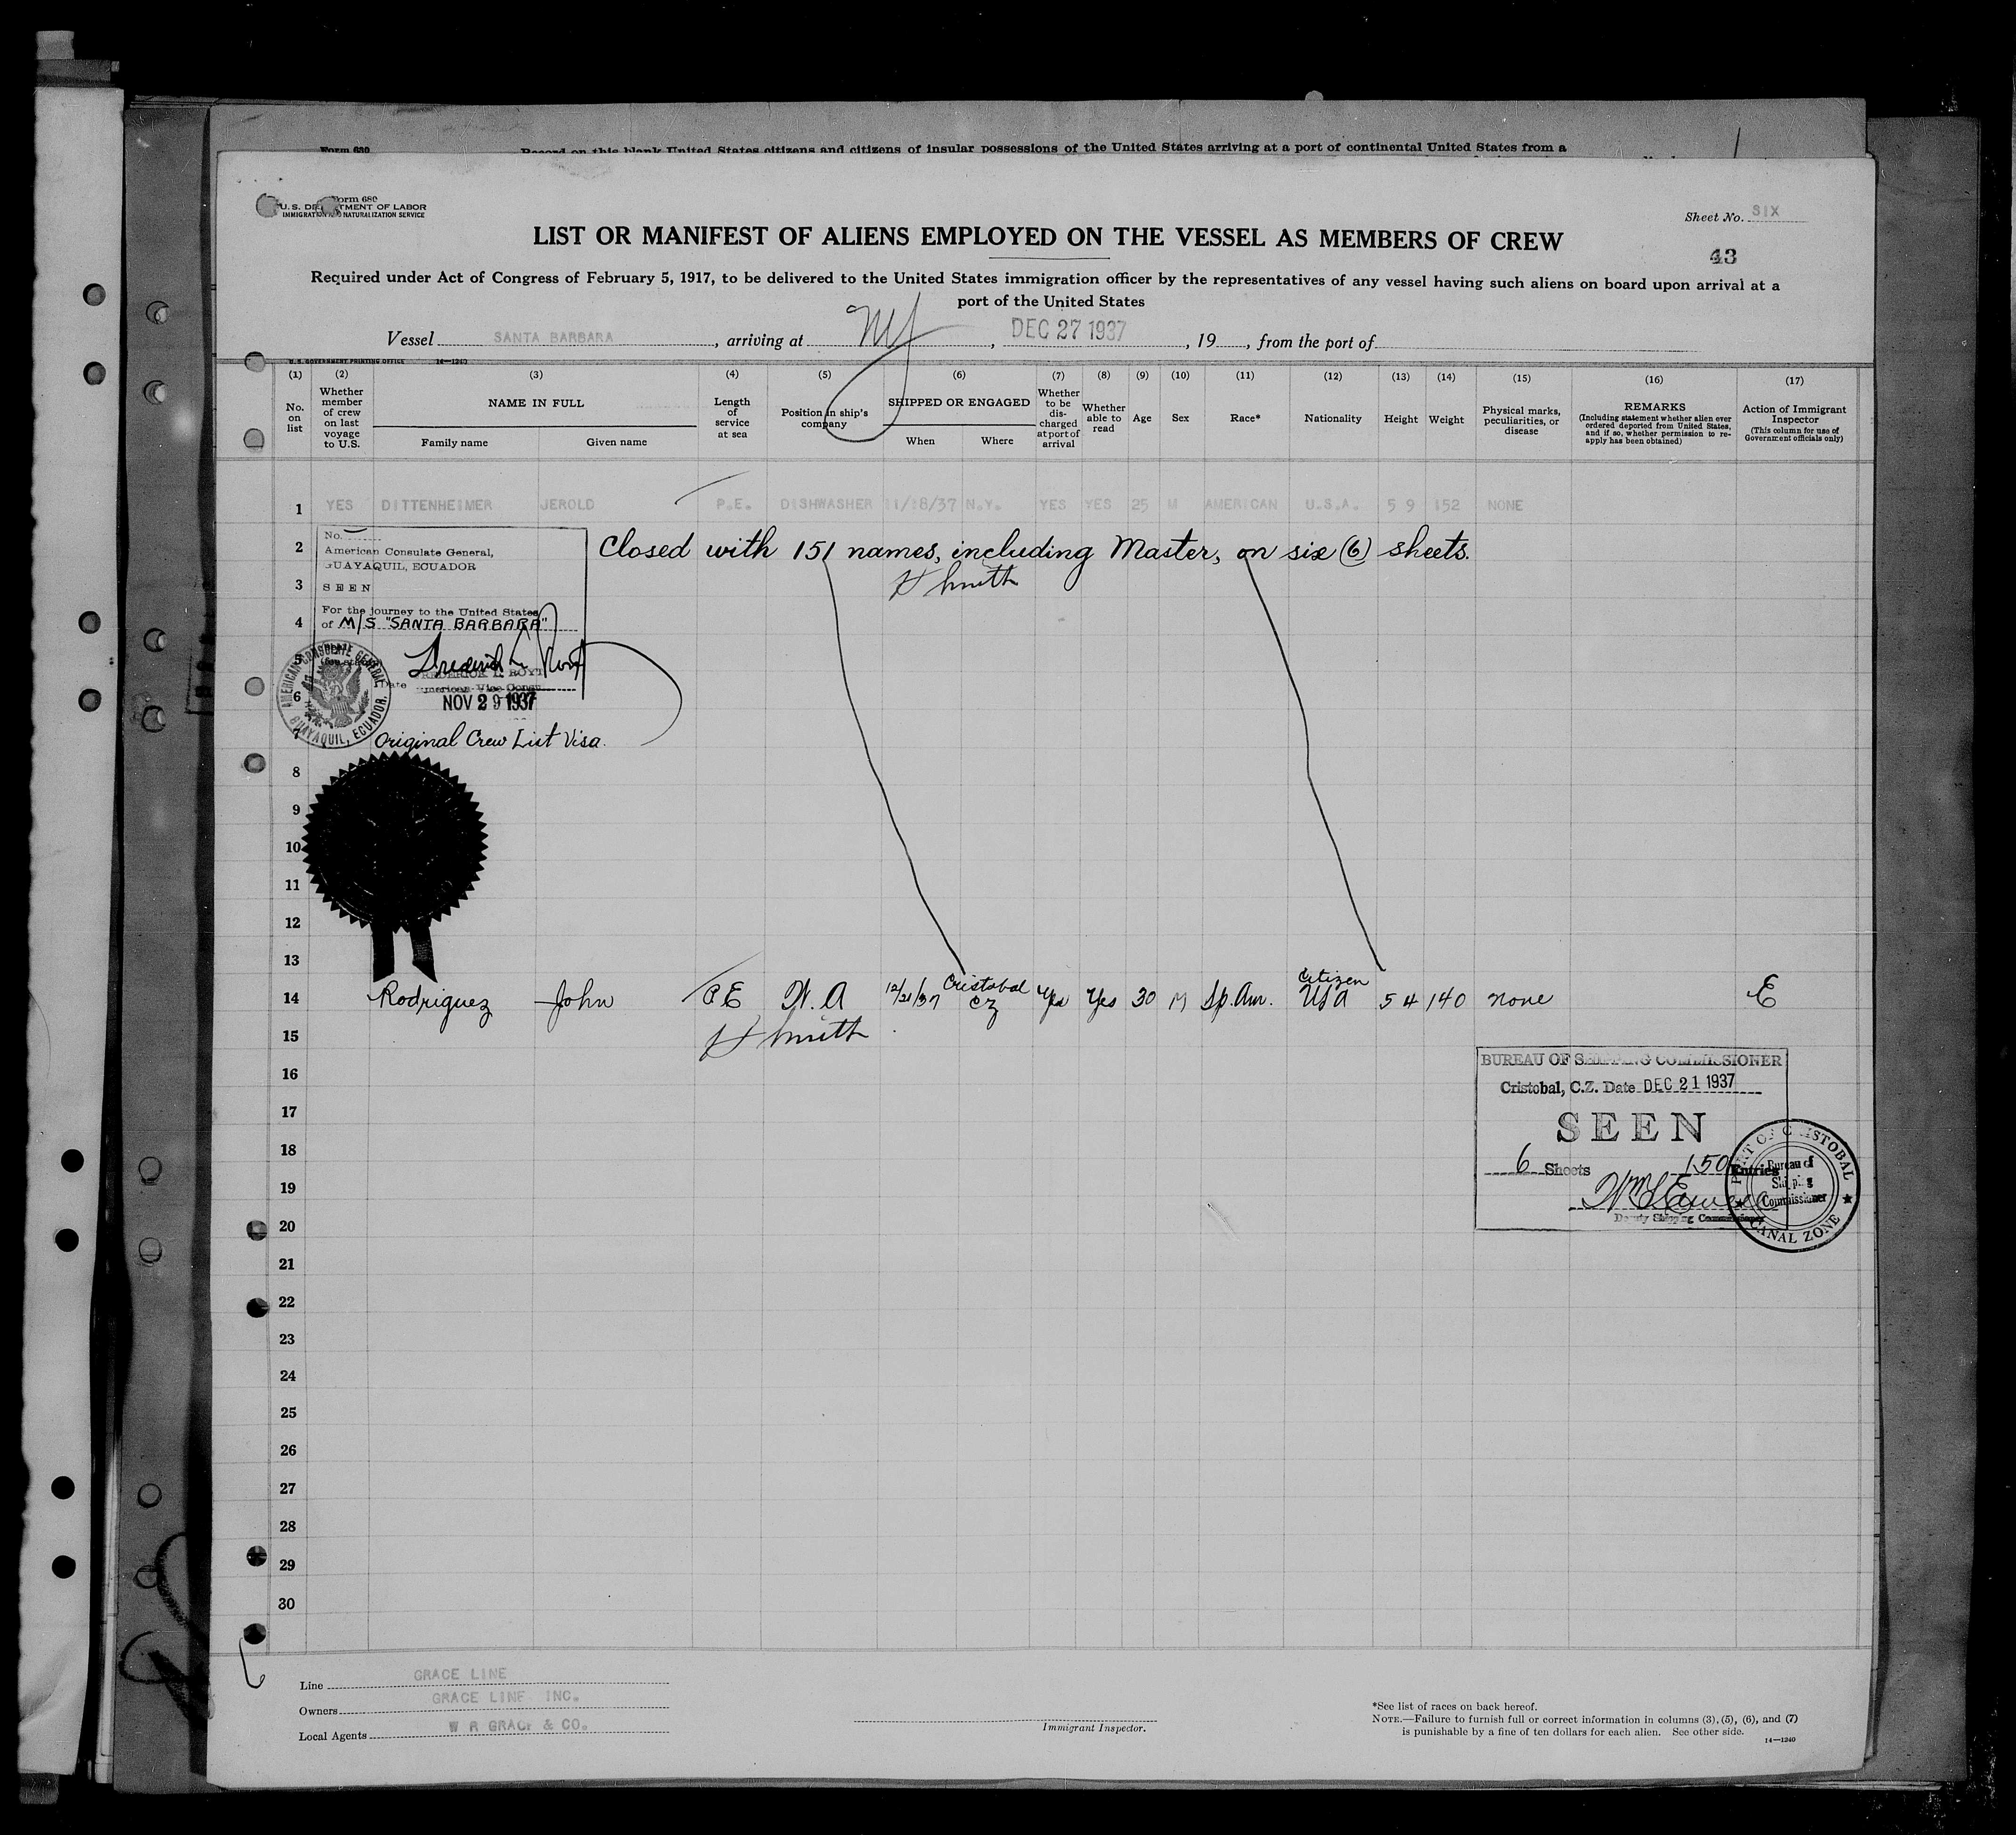 Form 630
Record on this blank United States citizens and citizens of insular possessions of the United States arriving at a port of continental United States from a
Form 680
U. S. DEPARTMENT OF LABOR
IMMIGRATION AND NATURALIZATION SERVICE
Sheet No. SIX
LIST OR MANIFEST OF ALIENS EMPLOYED ON THE VESSEL AS MEMBERS OF CREW
43
Required under Act of Congress of February 5, 1917, to be delivered to the United States immigration officer by the representatives of any vessel having such aliens on board upon arrival at a
port of the United States
Vessel SANTA BARBARA, arriving at NY, DEC 27 1937, 19, from the port of
U. S. GOVERNMENT PRINTING OFFICE 14—1240
(1) No. on list
(2) Whether member of crew on last voyage to U.S.
(3) NAME IN FULL Family name Given name
(4) Length of service at sea
(5) Position in ship's company
(6) SHIPPED OR ENGAGED When Where
(7) Whether to be discharged at port of arrival
(8) Whether able to read
(9) Age
(10) Sex
(11) Race*
(12) Nationality
(13) Height
(14) Weight
(15) Physical marks, peculiarities, or disease
(16) REMARKS (Including statement whether alien ever ordered deported from United States, and if so, whether permission to reapply has been obtained)
(17) Action of Immigrant Inspector (This column for use of Government officials only)
1 YES DITTENHEIMER JEROLD P.E. DISHWASHER 11/18/37 N.Y. YES YES 25 M AMERICAN U.S.A. 5 9 152 NONE
2 Closed with 151 names, including Master, on six (6) sheets.
H Smith
No.
American Consulate General,
GUAYAQUIL, ECUADOR
3 SEEN
For the journey to the United States
4 of M/S "SANTA BARBARA"
5
AMERICAN CONSULATE GENERAL GUAYAQUIL, ECUADOR.
Date
American Vice Consul
6 NOV 29 1937
7 Original Crew List Visa.
8
9
10
11
12
13
14 Rodriguez John P E W. A 12/21/37 Cristobal CZ Yes Yes 30 M Sp. Am. Citizen USA 5 4 140 none E
15 H Smith
16
17
18
19
20
21
22
23
24
25
26
27
28
29
30
BUREAU OF SHIPPING COMMISSIONER
Cristobal, C.Z. Date DEC 21 1937
SEEN
6 Sheets 150 Entries
Deputy Shipping Commissioner
PORT OF CRISTOBAL CANAL ZONE
Bureau of
Shipping
Commissioner
Line GRACE LINE
Owners GRACE LINE INC.
Local Agents W R GRACE & CO.
Immigrant Inspector.
*See list of races on back hereof.
NOTE.—Failure to furnish full or correct information in columns (3), (5), (6), and (7)
is punishable by a fine of ten dollars for each alien. See other side.
14—1240